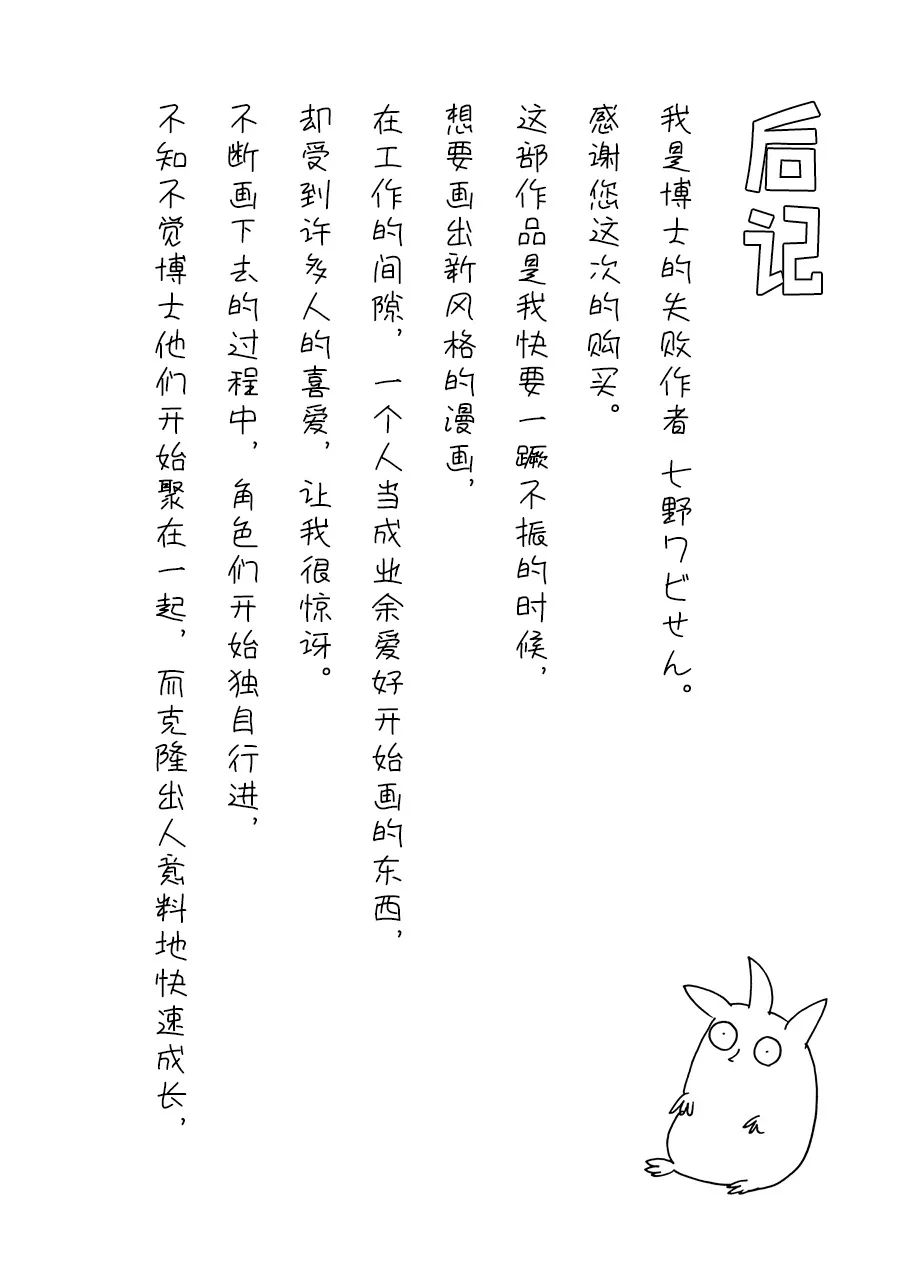 后记
我是博士的失败作者 七野ワビせん。
感谢您这次的购买。
这部作品是我快要一蹶不振的时候，
想要画出新风格的漫画，
在工作的间隙，一个人当成业余爱好开始画的东西，
却受到许多人的喜爱，让我很惊讶。
不断画下去的过程中，角色们开始独自行进，
不知不觉博士他们开始聚在一起，而克隆出人意料地快速成长，